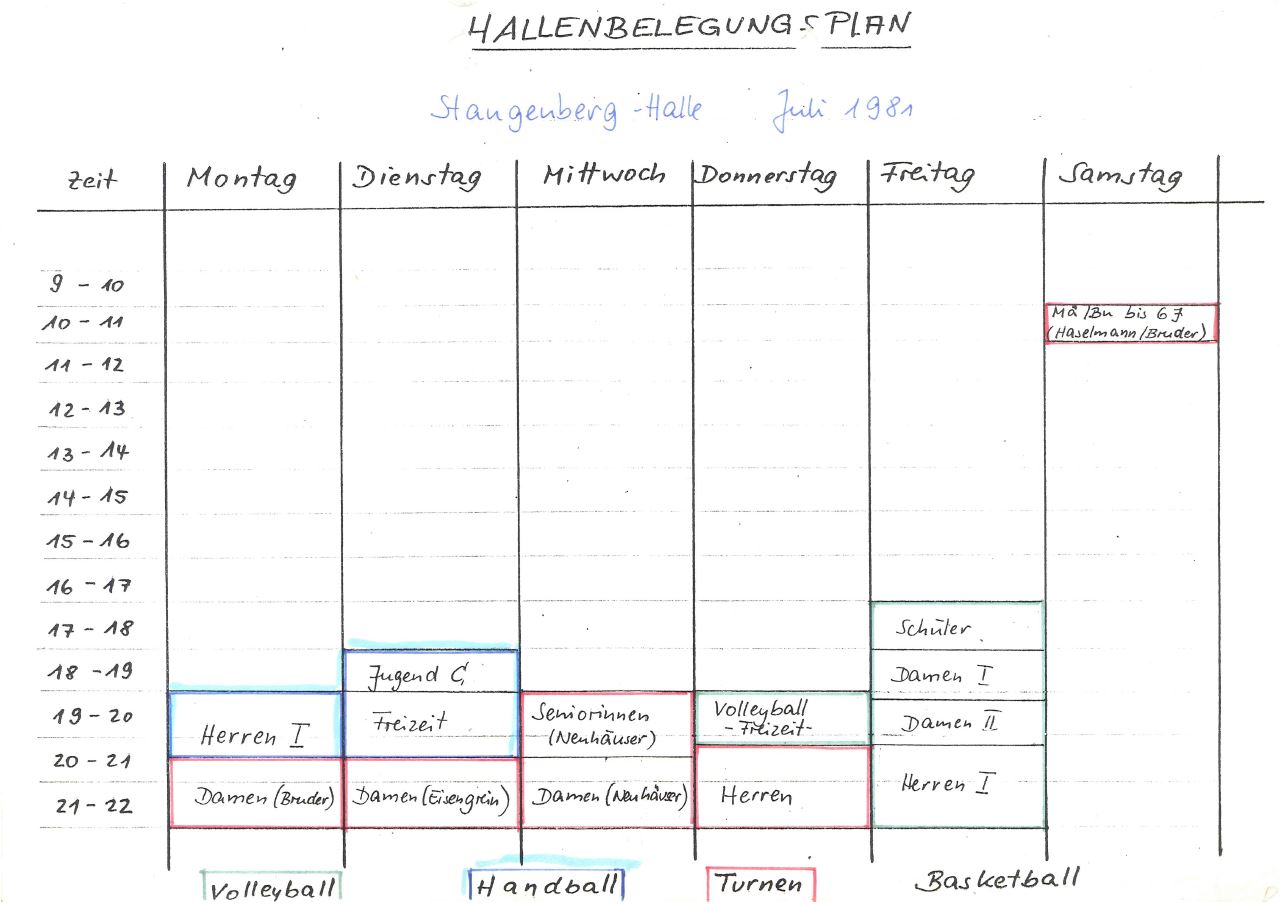 HALLENBELEGUNGSPLAN
Stangenberg-Halle Juli 1981
Zeit Montag Dienstag Mittwoch Donnerstag Freitag Samstag
9 - 10
10 - 11
Mä/Bu bis 6 J
(Haselmann/Bruder)
11 - 12
12 - 13
13 - 14
14 - 15
15 - 16
16 - 17
17 - 18 Schüler
18 - 19 Jugend C Damen I
19 - 20 Herren I Freizeit
Seniorinnen
(Neuhäuser)
Volleyball
- Freizeit -
Damen II
20 - 21 Herren I
21 - 22 Damen (Bruder) Damen (Eisengrein) Damen (Neuhäuser) Herren
Volleyball Handball Turnen Basketball